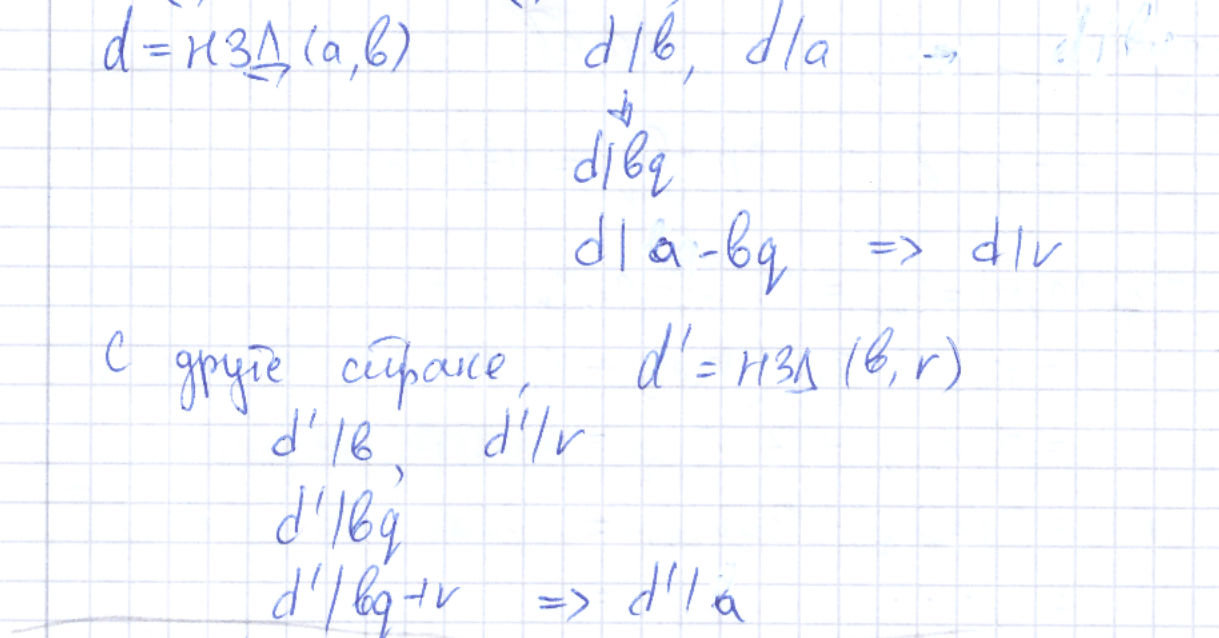 d = НЗД (a, b)   d/b, d/a →
↓
d/bq
d/a-bq => d/r
С друге стране, d' = НЗД (b, r)
d'/b, d'/r
d'/bq
d'/bq+r => d'/a